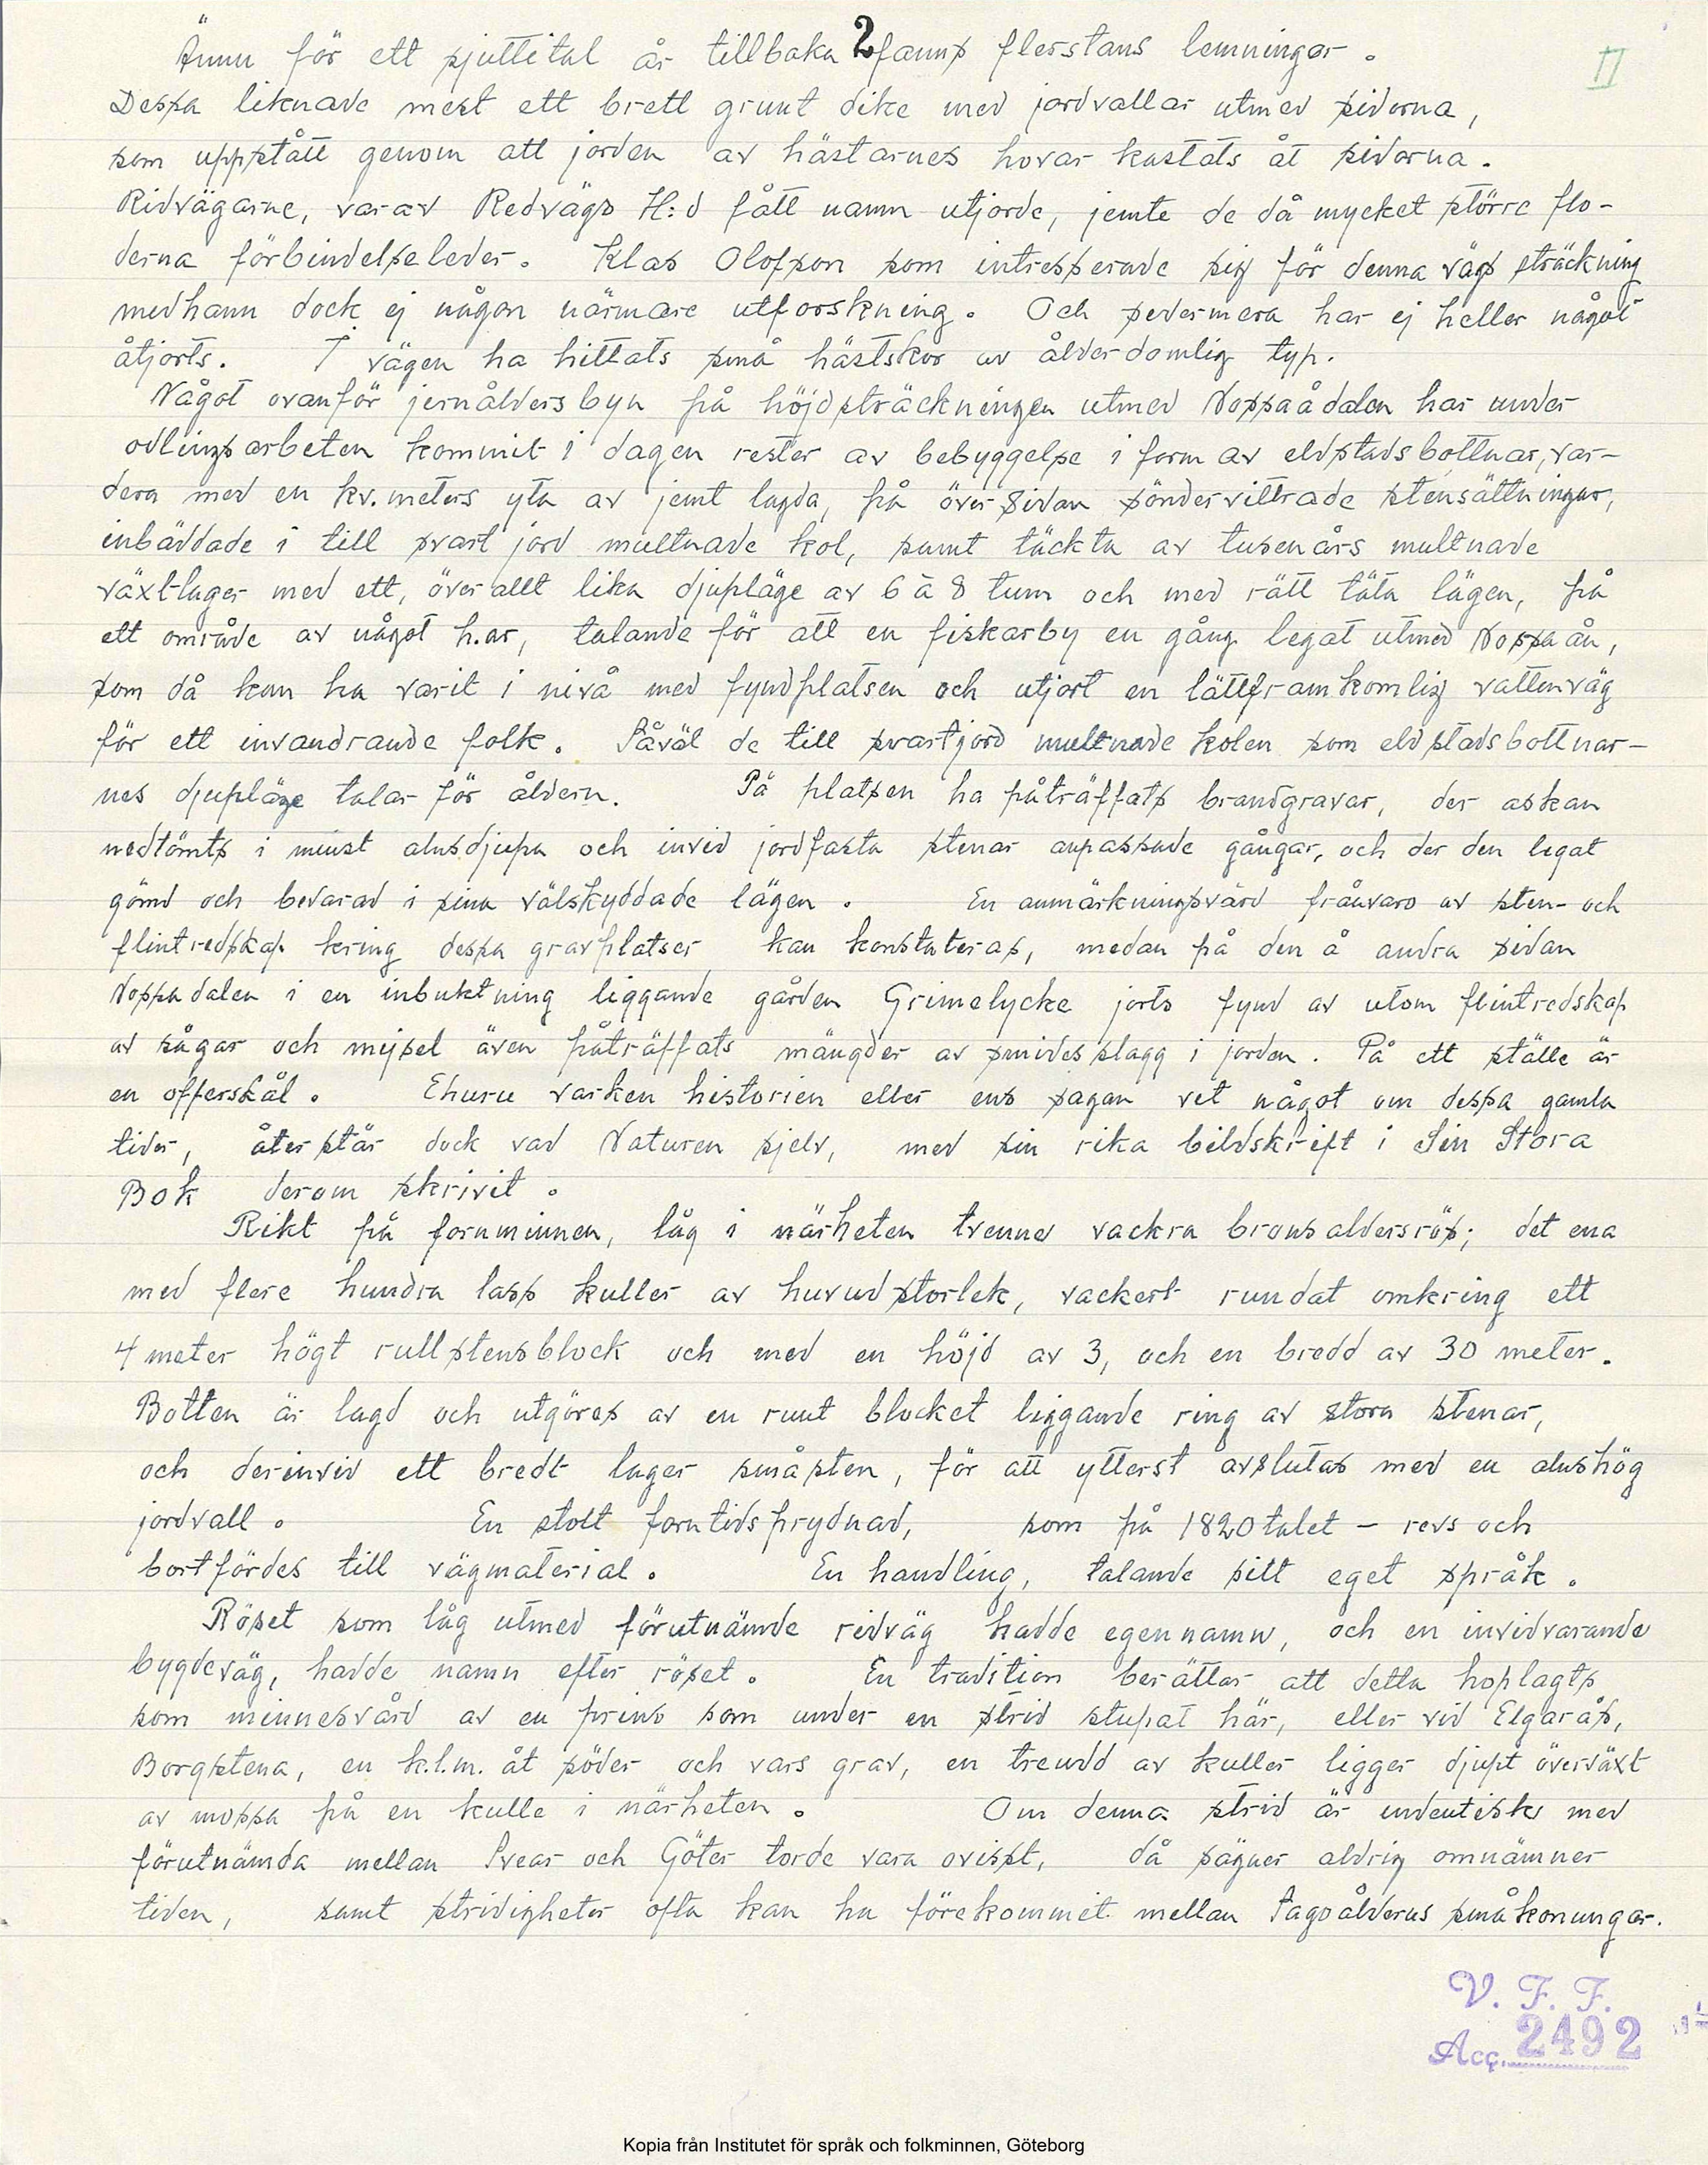 2
II
Ännu för ett sjuttital år tillbaka fanns flerstans lemningar.
Dessa liknade mest ett brett grunt dike med jordvallar utmed sidorna,
som uppstått genom att jorden av hästarnes hovar kastats åt sidorna.
Ridvägarne, varav Redvägs H:d fått namn utjorde, jemte de då mycket större flo-
derna förbindelseleder. Klas Olofson som intresserade sig för denna vägs sträckning
medhann dock ej någon närmare utforskning. Och sedermera har ej heller något
åtjorts. I vägen ha hittats små hästskor av ålderdomlig typ.
Något ovanför jernåldersbyn på höjdsträckningen utmed Nossaådalen har under
odlingsarbeten kommit i dagen rester av bebyggelse i form av eldstadsbottnar, var-
dera med en kv.meters yta av jemt lagda, på översidan söndervittrade stensättningar,
inbäddade i till svart jord multnade kol, samt täckta av tusenårs multnade
växtlager med ett, överallt lika djupläge av 6 à 8 tum och med rätt täta lägen, på
ett område av något h.ar, talande för att en fiskarby en gång legat utmed Nossaån,
som då kan ha varit i nivå med fyndplatsen och utjort en lättframkomlig vattenväg
för ett invandrande folk. Såväl de till svartjord multnade kolen som eldstadsbottnar-
nes djupläge talar för åldern. På platsen ha påträffats brandgravar, der askan
nedtömts i minst alnsdjupa och invid jordfasta stenar anpassade gångar, och der den legat
gömd och bevarad i sina välskyddade lägen. En anmärkningsvärd frånvaro av sten- och
flintredskap kring dessa gravplatser kan konstateras, medan på den å andra sidan
Nossadalen i en inbuktning liggande gården Grimelycke jorts fynd av utom flintredskap
av sågar och mejsel även påträffats mängder av smidesslagg i jorden. På ett ställe är
en offerskål. Ehuru varken historien eller ens sagan vet något om dessa gamla
tider, återstår dock vad Naturen sjelv, med sin rika bildskrift i Sin Stora
Bok derom skrivit.
Rikt på fornminnen, låg i närheten trenne vackra bronsaldersrös; det ena
med flere hundra lass kuller av huvudstorlek, vackert rundat omkring ett
4 meter högt rullstensblock och med en höjd av 3, och en bredd av 30 meter.
Botten är lagd och utgöres av en runt blocket liggande ring av stora stenar,
och derinvid ett bredt lager småsten, för att ytterst avslutas med en alnshög
jordvall. En stolt forntidsprydnad, som på 1820talet – revs och
bortfördes till vägmaterial. En handling, talande sitt eget språk.
Röset som låg utmed förutnämde ridväg hadde egennamn, och en invidvarande
bygdeväg, hadde namn efter röset. En tradition berättar att detta hoplagts
som minnesvård av en prins som under en strid stupat här, eller vid Elgarås,
Borgstena, en k.l.m. åt söder och vars grav, en treudd av kuller ligger djupt överväxt
av mossa på en kulle i närheten. Om denna strid är indentisk med
förutnämda mellan Svear och Göter torde vara ovisst, då sägner aldrig omnämner
tiden, samt stridigheter ofta kan ha förekommit mellan Sagoålderns småkonungar.
V. F. F.
Acc. 2492
Kopia från Institutet för språk och folkminnen, Göteborg